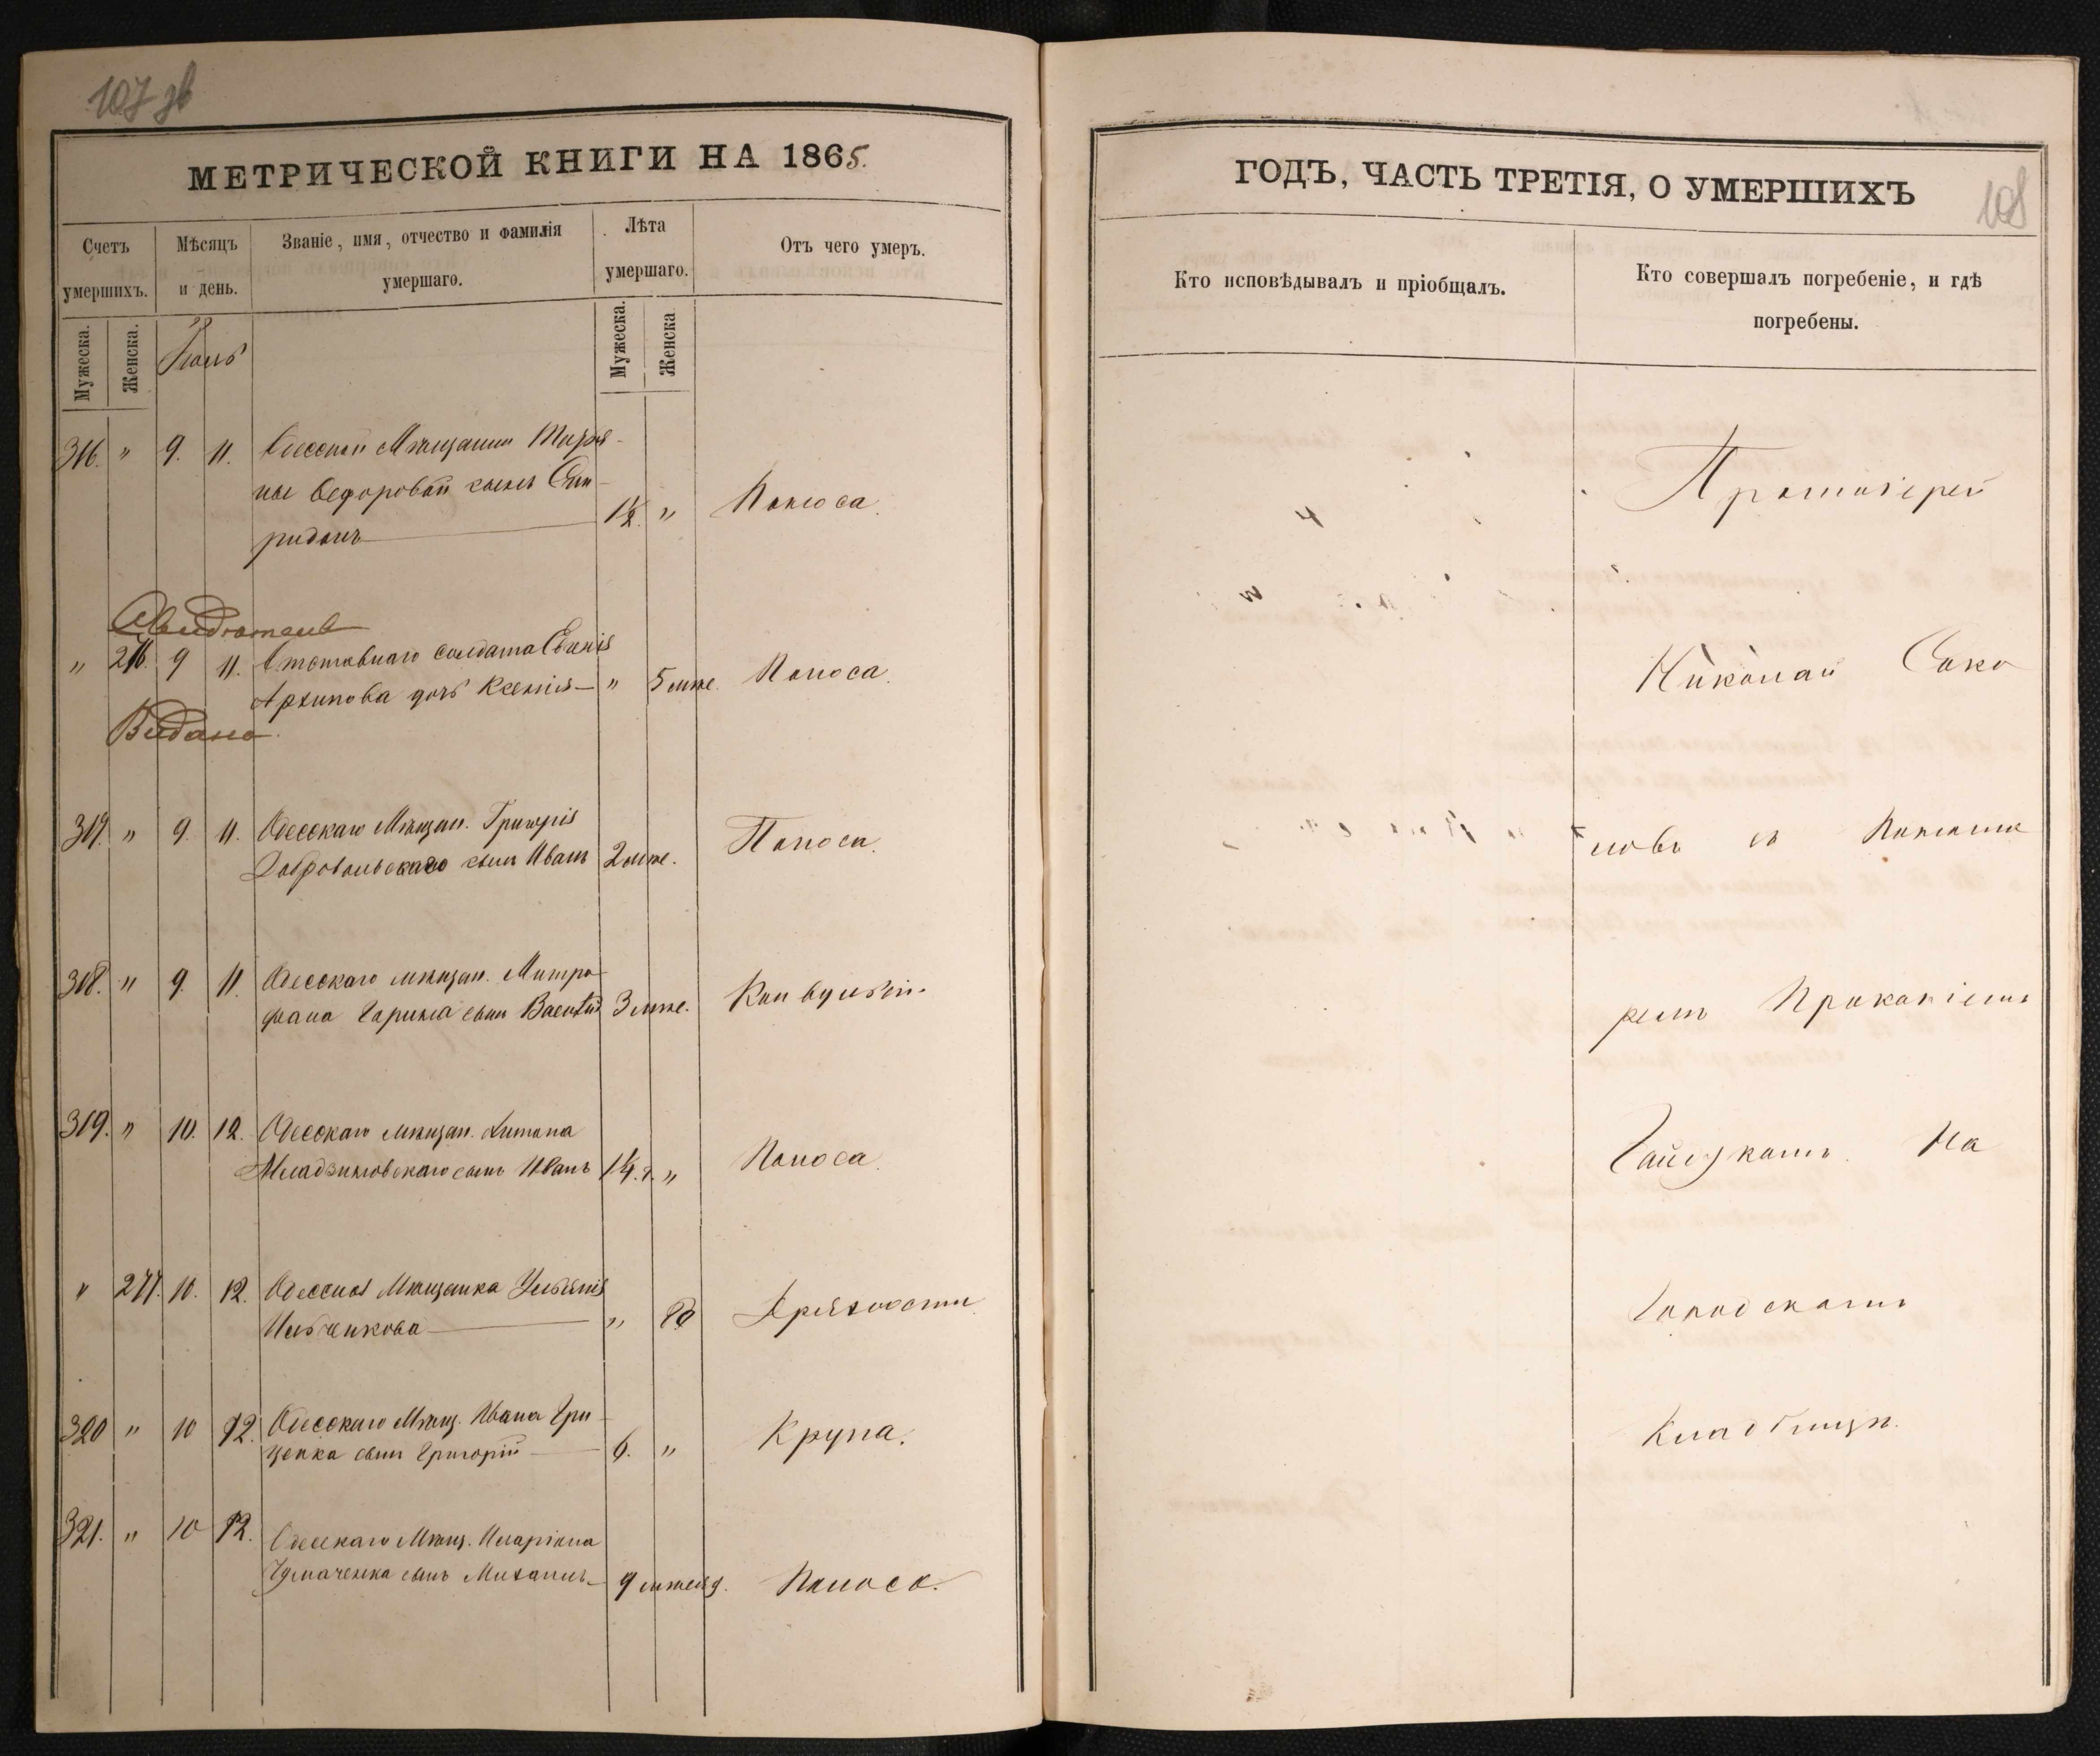 107 зв
МЕТРИЧЕСКОЙ КНИГИ НА 1865.
Счетъ умершихъ.
Мѣсяцъ и день.
Званіе, имя, отчество и фамилія умершаго.
Лѣта умершаго.
Отъ чего умеръ.
Мужеска.
Женска.
Мужеска.
Женска
316. " 9. 11. Одесской Мѣщанки
ны Ѳедоровой сынъ Спи-
ридонъ 1½ " Поноса.
" 216. 9 11. Отставнаго солдата
Архипова дочь Ксенія " 5 мѣс. Поноса.
Видано
317. " 9. 11. Одесскаго Мѣщан. Григорія
Добровольскаго сынъ Иванъ 2 мѣс. Поноса.
318. " 9. 11. Одесскаго мѣщан. Митро-
фана сынъ Василій 3 мѣс. Конвульсіи.
319. " 10. 12. Одесскаго мѣщан. Антона
сынъ Иванъ 1¼ г. " Поноса.
" 277. 10. 12. Одесская Мѣщанка Ульянія
" Дряхлости
320 " 10 12. Одесскаго Мѣщ. Ивана Гри-
ценка сынъ Григорій 6. " Крупа.
321. " 10 12. Одесскаго Мѣщ. Иларіона
Чумаченка сынъ Михаилъ 9 Поноса.
ГОДЪ, ЧАСТЬ ТРЕТІЯ, О УМЕРШИХЪ
108
Кто исповѣдывалъ и пріобщалъ.
Кто совершалъ погребеніе, и гдѣ погребены.
Протоіерей
Николай Соко
ловъ съ Понома
ремъ Прокопіемъ
На
Городскомъ
Кладбищѣ.